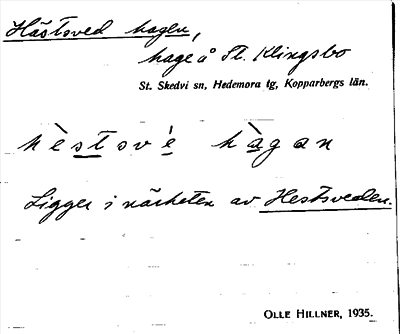 Hästsved hagen,
hage å St. Klingsbo
St. Skedvi sn, Hedemora tg, Kopparbergs län.
hὲstsvé hàgan
Ligger i närheten av Hestsveden.
OLLE HILLNER, 1935.